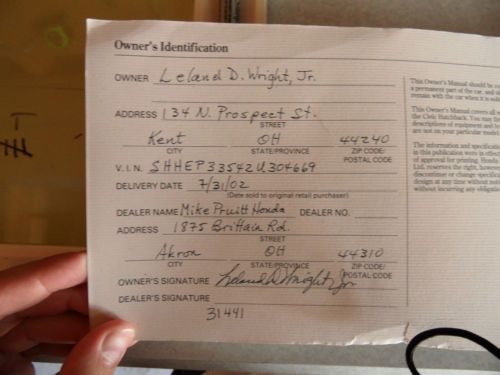 Owner's Identification
OWNER Leland D. Wright, Jr.
ADDRESS 134 N. Prospect St.
STREET
Kent OH 44240
CITY STATE/PROVINCE ZIP CODE/
POSTAL CODE
V.I.N. SHHEP33542U304669
DELIVERY DATE 7/31/02
(Date sold to original retail purchaser)
DEALER NAME Mike Pruitt Honda DEALER NO.
ADDRESS 1875 Brittain Rd.
STREET
Akron OH 44310
CITY STATE/PROVINCE ZIP CODE/
POSTAL CODE
OWNER'S SIGNATURE Leland D. Wright Jr
DEALER'S SIGNATURE
31441
This Owner's Manual should be
a permanent part of the car, and
remain with the car when it is
This Owner's Manual covers all
the Civic Hatchback. You may
descriptions of equipment and
are not on your particular
The information and
in this publication were in
of approval for printing. Honda
Ltd. reserves the right, however,
discontinue or change
design at any time without
without incurring any